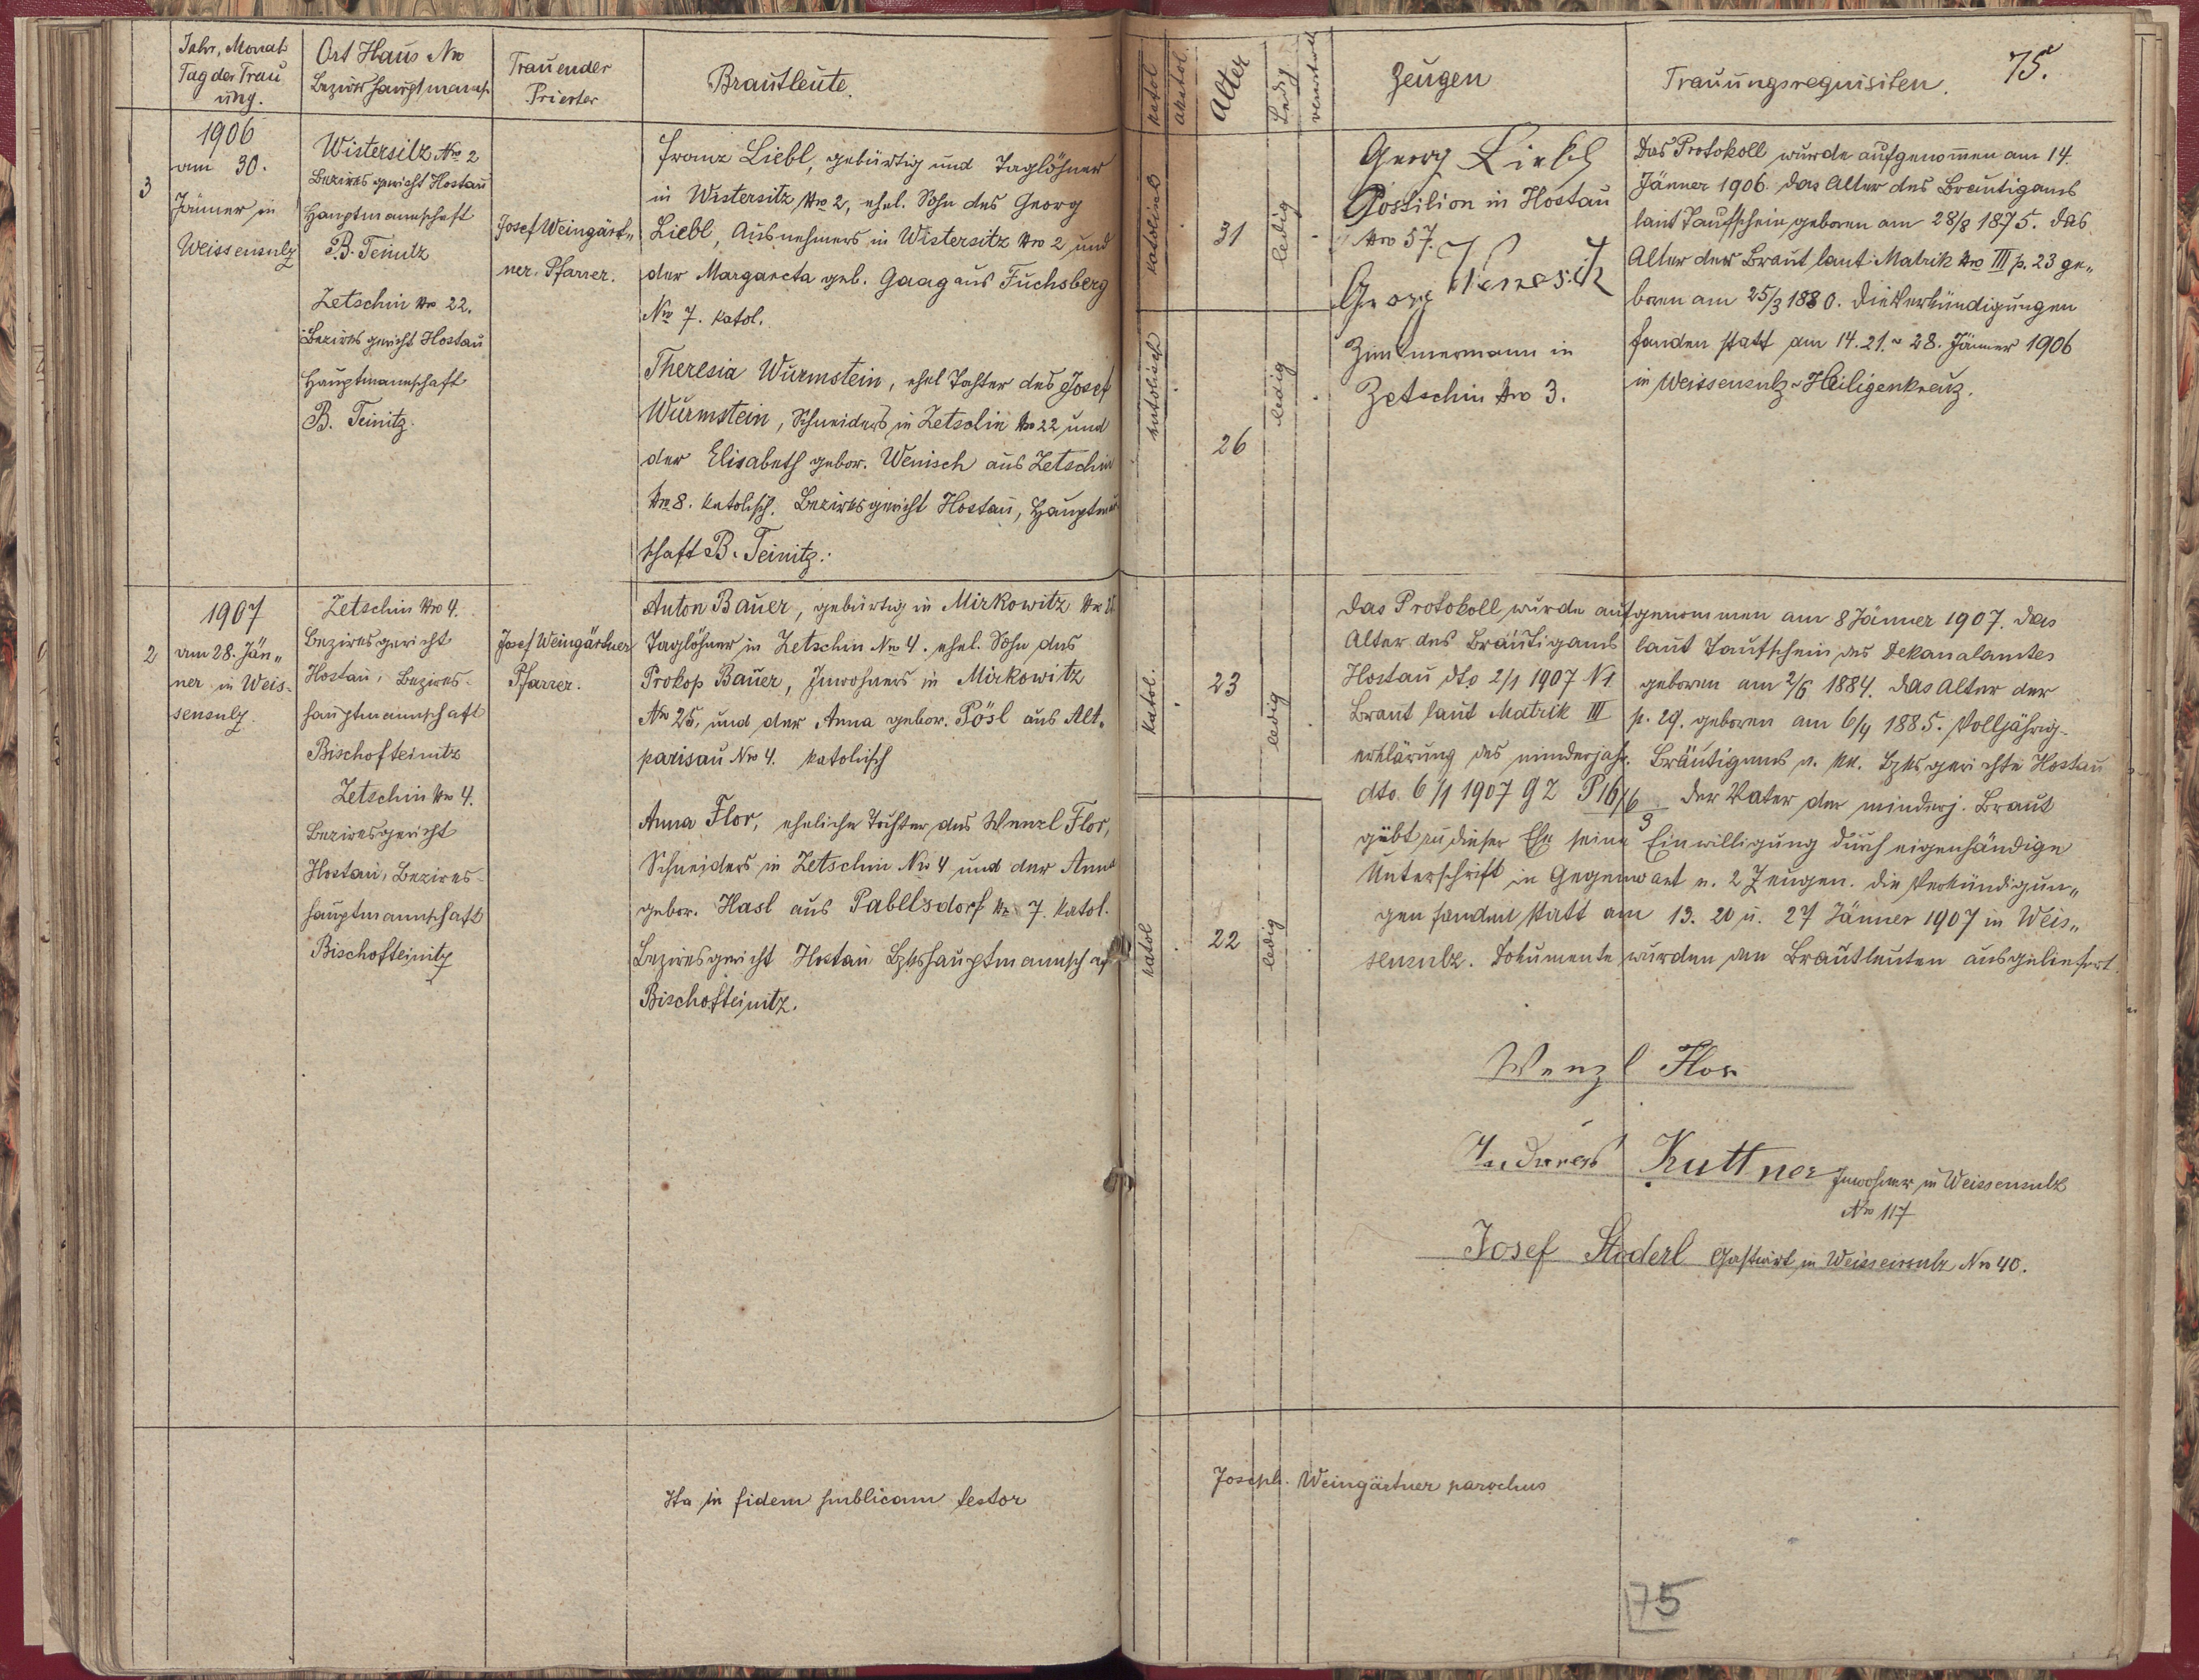 Jahr, Monat
Tag der Trau
ung.
Ort Haus Nro
Bezirkshauptmansch.
Trauender
Priester
Brautleute.
katol
akatol.
Alter
Ledig
verwitwet
Zeugen
Trauungsrequisiten.
75.
3
1906
am 30.
Jänner in
Weissensulz
Wistersitz Nro 2
Bezirksgericht Hostau
Hauptmannschaft
B. Teinitz
Zetschin Nro 22.
Bezirksgericht Hostau
Hauptmannschaft
B. Teinitz.
Josef Weingärt„
ner. Pfarrer.
Franz Liebl, gebürtig und Taglöhner
in Wistersitz Nro 2, ehel. Sohn des Georg
Liebl, Ausnehmers in Wistersitz Nro 2 und
der Margareta geb. Gaag aus Fuchsberg
Nro 7. katol.
Theresia Wurmstein, ehel Tochter des Josef
Wurmstein, Schneiders in Zetschin Nro 22 und
der Elisabeth gebor. Wenisch aus Zetschin
Nro 8. katolisch. Bezirksgericht Hostau, Hauptman
schaft B. Teinitz.
katolisch
31
ledig
katolisch
26
ledig
Georg Liebl
Postilion in Hostau
Nro 57.
Georg
Zimmermann in
Zetschin Nro 3.
Das Protokoll wurde aufgenommen am 14.
Jänner 1906. Das Alter des Bräutigams
laut Taufschein geboren am 28/8 1875. Das
Alter der Braut laut Matrik Nro III p. 23 ge„
boren am 25/3 1880. Die Verkündigungen
fanden statt am 14. 21. 28. Jänner 1906
in Weissensulz Heiligenkreuz.
2
1907
am 28. Jän„
ner in Weis-
sensulz.
Zetschin Nro 4.
Bezirksgericht
Hostau, Bezirks-
hauptmannschaft
Bischofteinitz
Zetschin Nro 4.
Bezirksgericht
Hostau, Bezirks-
hauptmannschaft
Bischofteinitz
Josef Weingärtner
Pfarrer.
Anton Bauer, gebürtig in Mirkowitz Nro
Taglöhner in Zetschin Nro 4. ehel. Sohn des
Prokop Bauer, Inwohners in Mirkowitz
Nro 25, und der Anna gebor. Pösl aus Alt„
parisau Nro 4. katolisch
Anna Flor, eheliche Tochter des Wenzl Flor,
Schneiders in Zetschin Nro 4 und der Anna
gebor. Hasl aus Pabelsdorf Nr 7. katol.
Bezirksgericht Hostau Bzkshauptmannschaft
Bischofteinitz.
katol.
23
ledig
katol
22
ledig
Das Protokoll wurde aufgenommen am 8 Jänner 1907. Das
Alter des Bräutigams laut Taufschein des Dekanalamtes
Hostau dto 2/1 1907 N 1. geboren am 2/6 1884. Das Alter der
Braut laut Matrik III p. 29. geboren am 6/4 1885. Volljährig-
erklärung des minderjähr. Bräutigams v. kk. Bzksgerichte Hostau
dto. 6/1 1907 GZ P 16/6 3. Der Vater der minderj. Braut
gibt zu dieser Ehe seine Einwilligung durch eigenhändige
Unterschrift in Gegenwart v. 2 Zeugen. Die Verkündigun„
gen fanden statt am 13. 20 u. 27 Jänner 1907 in Weis„
sensulz. Dokumente wurden den Brautleuten ausgeliefert.
Wenzl Flor
Andreas Kuttner Inwohner in Weissensulz
Nro 117
Josef Stoderl Gastwirt in Weissensulz Nro 40.
Ita in fidem publicam testor
Joseph. Weingärtner parochus
75